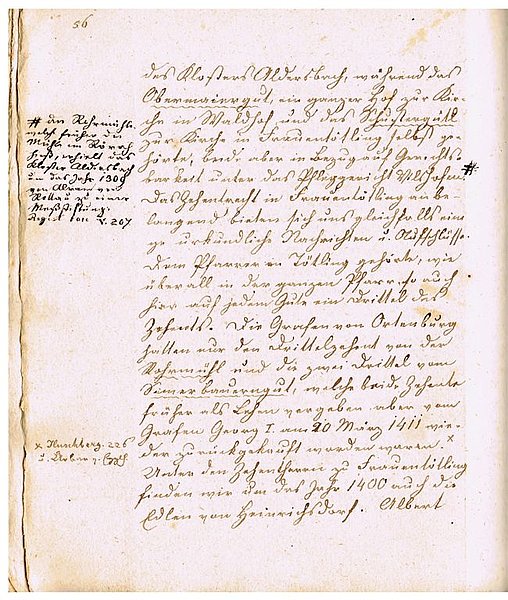 56
des Klosters Aldersbach, während das
Obermaiergut, ein ganzer Hof zur Kir-
che in Waldhof, und das Schustergütl
zur Kirche in Frauentötling selbst ge-
hörte, beide aber in Bezug auf Gerichts-
barkeit unter das Pfleggericht Vilshofen #
Das Zehentrecht in Frauentötling anbe-
langend bieten sich uns gleichfalls eini-
ge urkundliche Nachrichten u. Aufschlüsse.
Dem Pfarrer von Tötling gehörte, wie
überall in der ganzen Pfarr, so auch
hier auf jedem Gute ein Drittel des
Zehents. Die Grafen von Ortenburg
hatten nur den Drittelzehent von der
Rohrmühl und die zwei Drittel vom
Simerbauerngut, welche beide Zehente
früher als Lehen vergeben aber vom
Grafen Georg I. am 20 März 1411 wie-
der zurückgekauft worden waren. x
Unter den Zehentherren zu Frauentötling
finden wir um das Jahr 1400 auch die
Edlen von Heinrichsdorf. Albert
# die Rohrmühle,
welche früher die
Mühle im Rörrach
hieß, erhielt das
Kloster Aldersbach
um das Jahr 1309
von Alram von
Rottau zu einer
Meßstiftung.
Regest. boic. V. 207
x Huschberg. 226